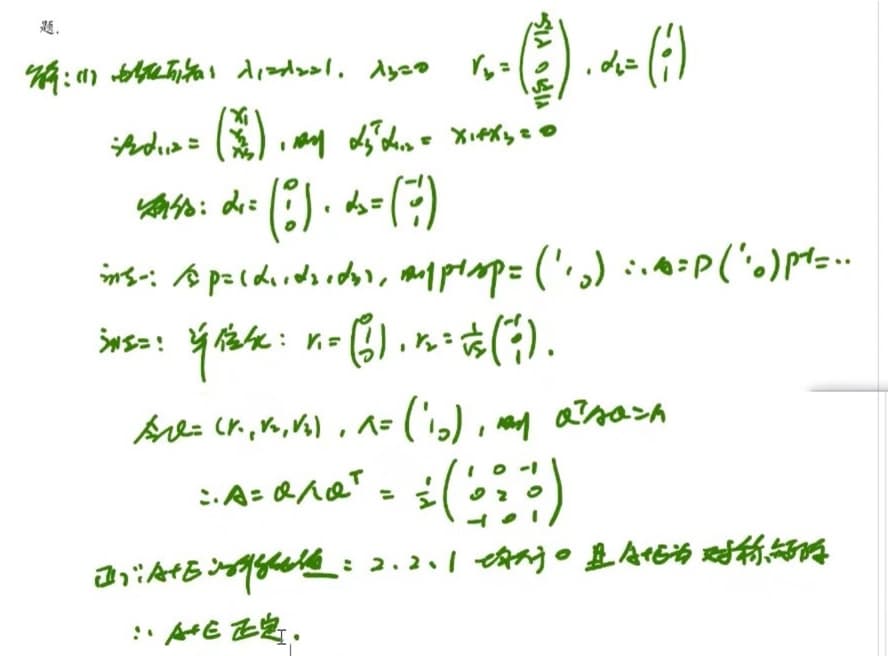 题.
解:(1) 由题可知: λ₁=λ₂=1, λ₃=0 r₃=(√2/2 0 √2/2), α₃=(1 0 1)
设α₁,₂=(x₁ x₂ x₃), 则 α₃ᵀα₁,₂= x₁+x₃=0
解得: α₁=(0 1 0), α₂=(-1 0 1)
法一: 令P=(α₁,α₂,α₃), 则P⁻¹AP=(1 1 0) ∴A=P(1 1 0)P⁻¹=..
法二: 单位化: r₁=(0 1 0), r₂=1/√2(-1 0 1).
令Q=(r₁,r₂,r₃), Λ=(1 1 0), 则 QᵀAQ=Λ
∴A=QΛQᵀ = 1/2(1 0 -1 0 2 0 -1 0 1)
(2)∵A+E的特征值: 2、2、1 均大于0 且A+E为对称矩阵
∴A+E正定.